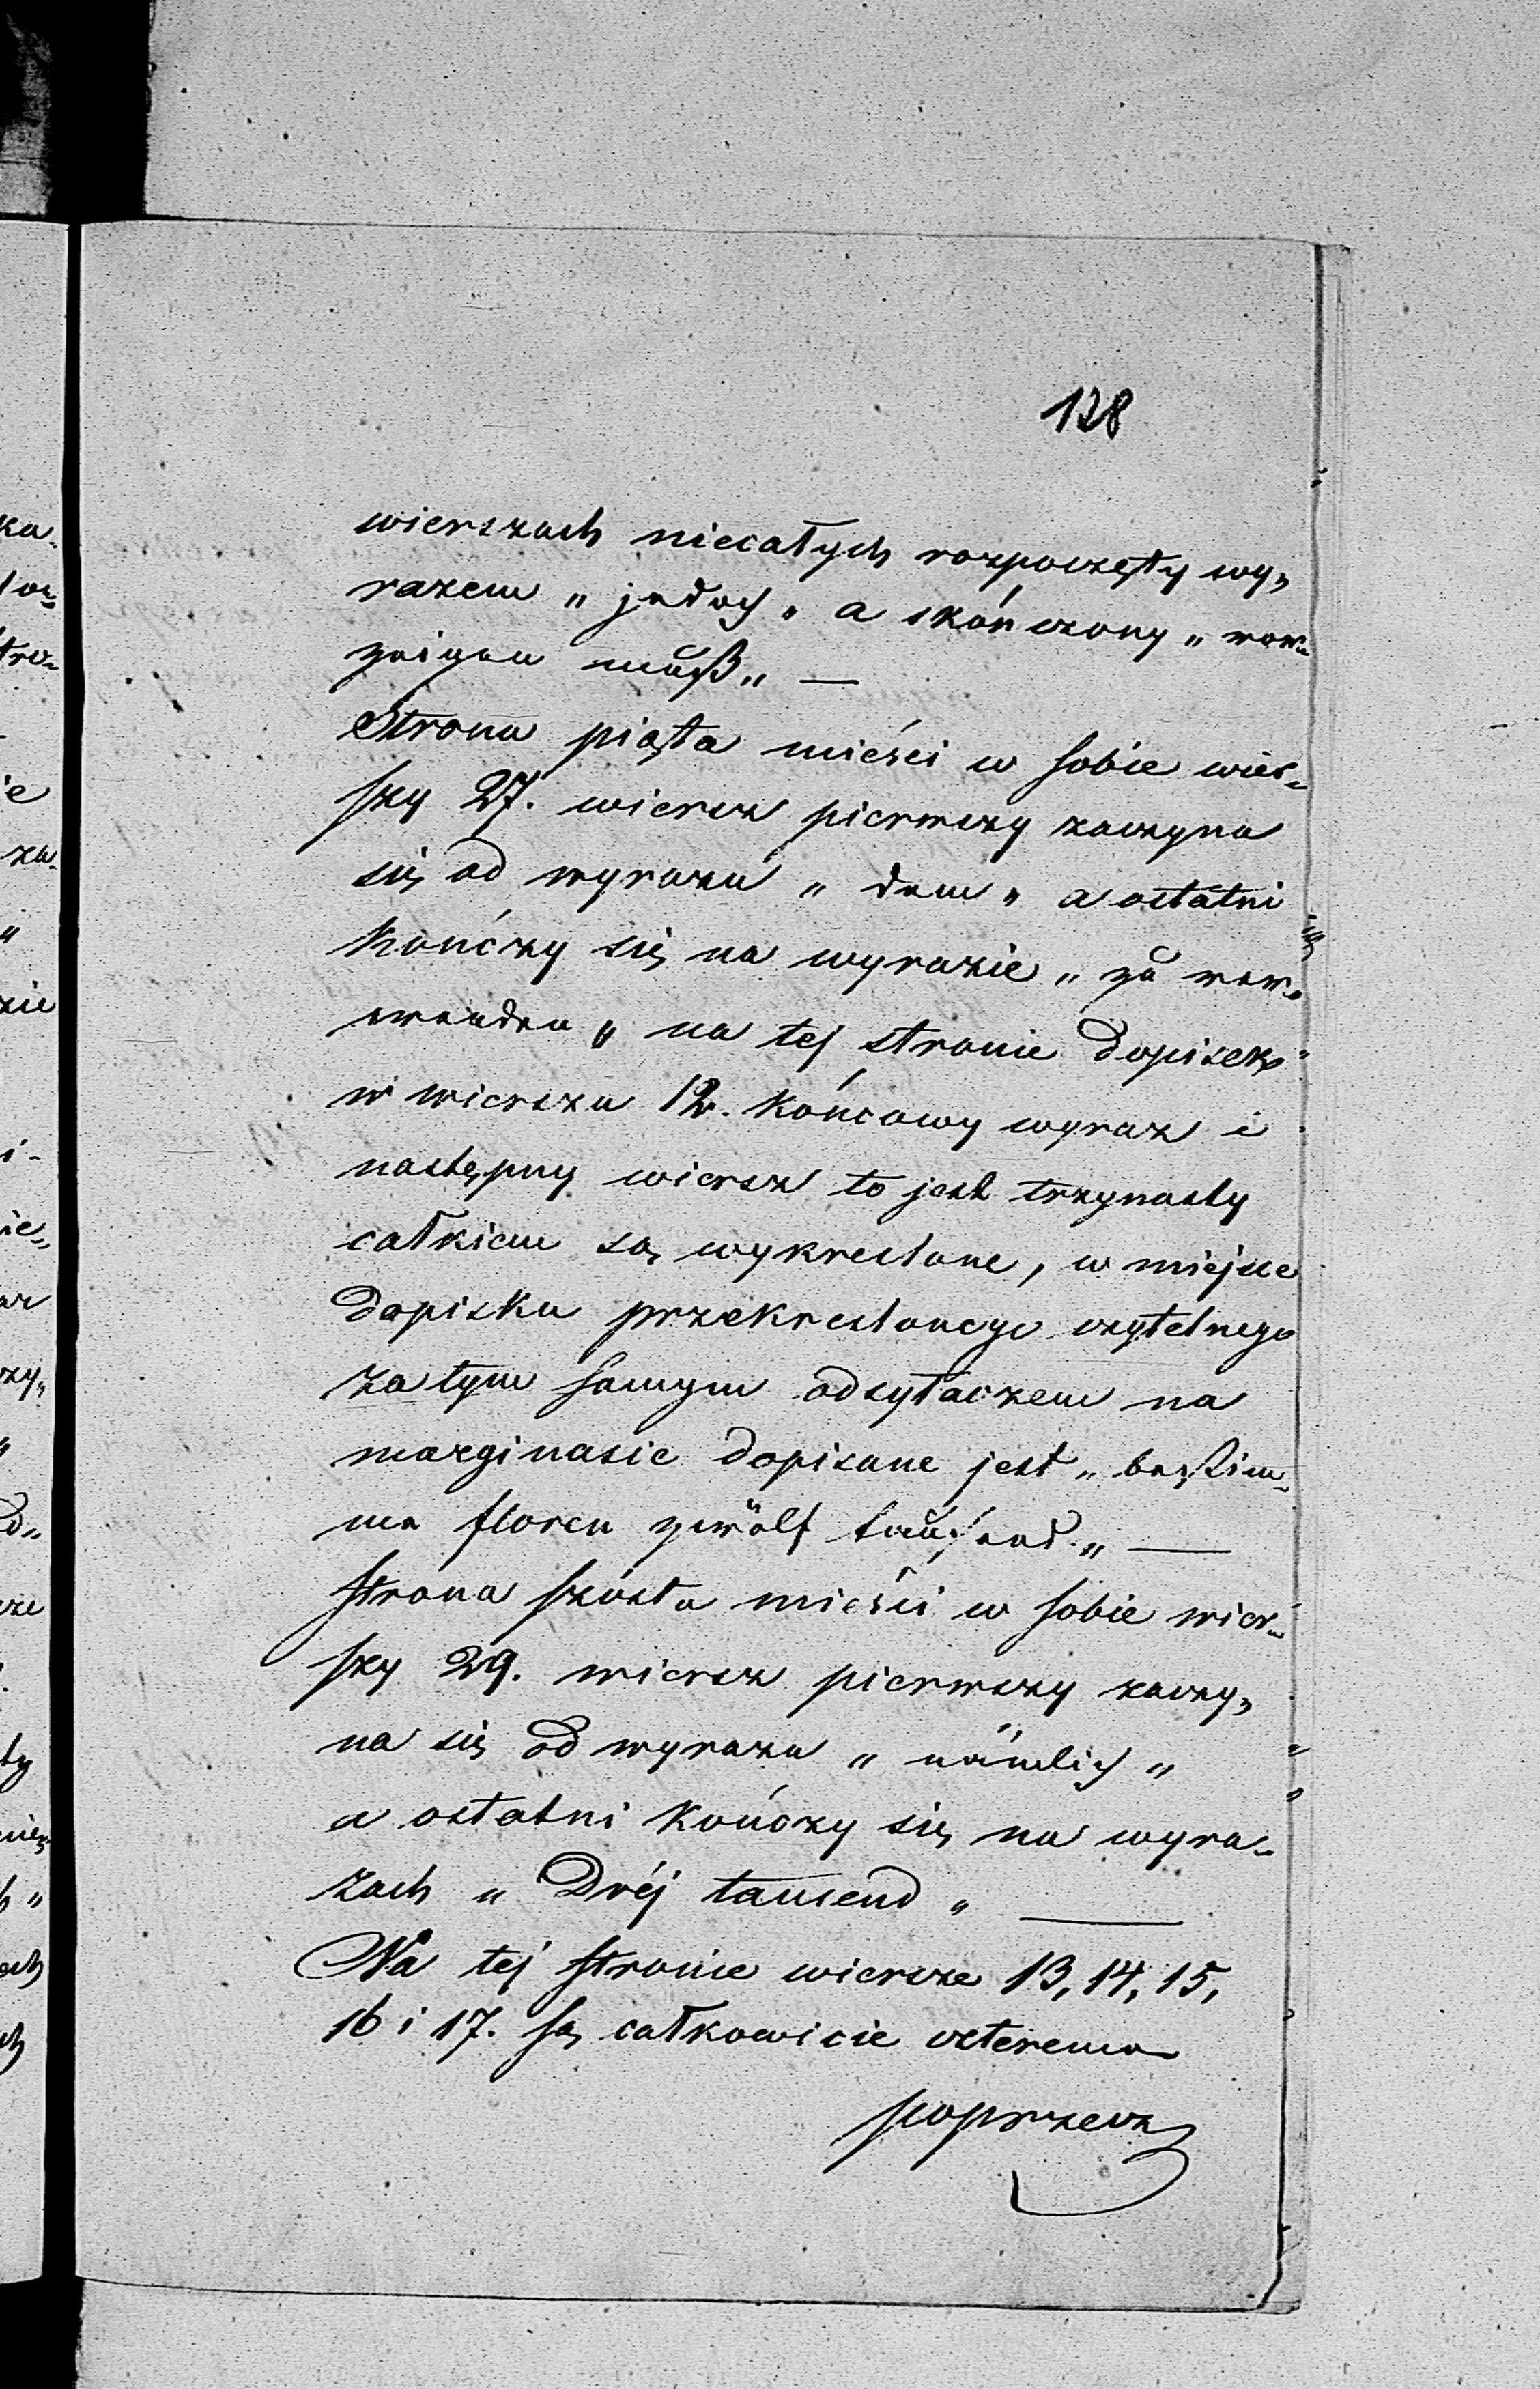 128
wierszach niecałych rozpoczęty wy„
razem „ jedoch „ a skończony „ vor„
zeigen muß„ —
Strona piąta mieści w sobie wier„
szy 27. wiersz pierwszy zaczyna
się od wyrazu „ dem „ a ostatni
kończy się na wyrazie „ zu ver„
wenden „ na tej stronie dopisek
w wierszu 12. końcowy wyraz i
następny wiersz to jest trzynasty
całkiem są wykreślone, w miejsce
dopisku przekreślonego czytelnego
za tym samym odsyłaczem na
marginesie dopisane jest „ bestim„
me floren zwölf tausend „ —
strona szósta mieści w sobie wier„
szy 29. wiersz pierwszy zaczy„
na się od wyrazu „ nämlich „
a ostatni kończy się na wyra„
zach „ Drej tausend „ —
Na tej stronie wiersze 13, 14, 15,
16 i 17. są całkowicie czterema
poprzecz